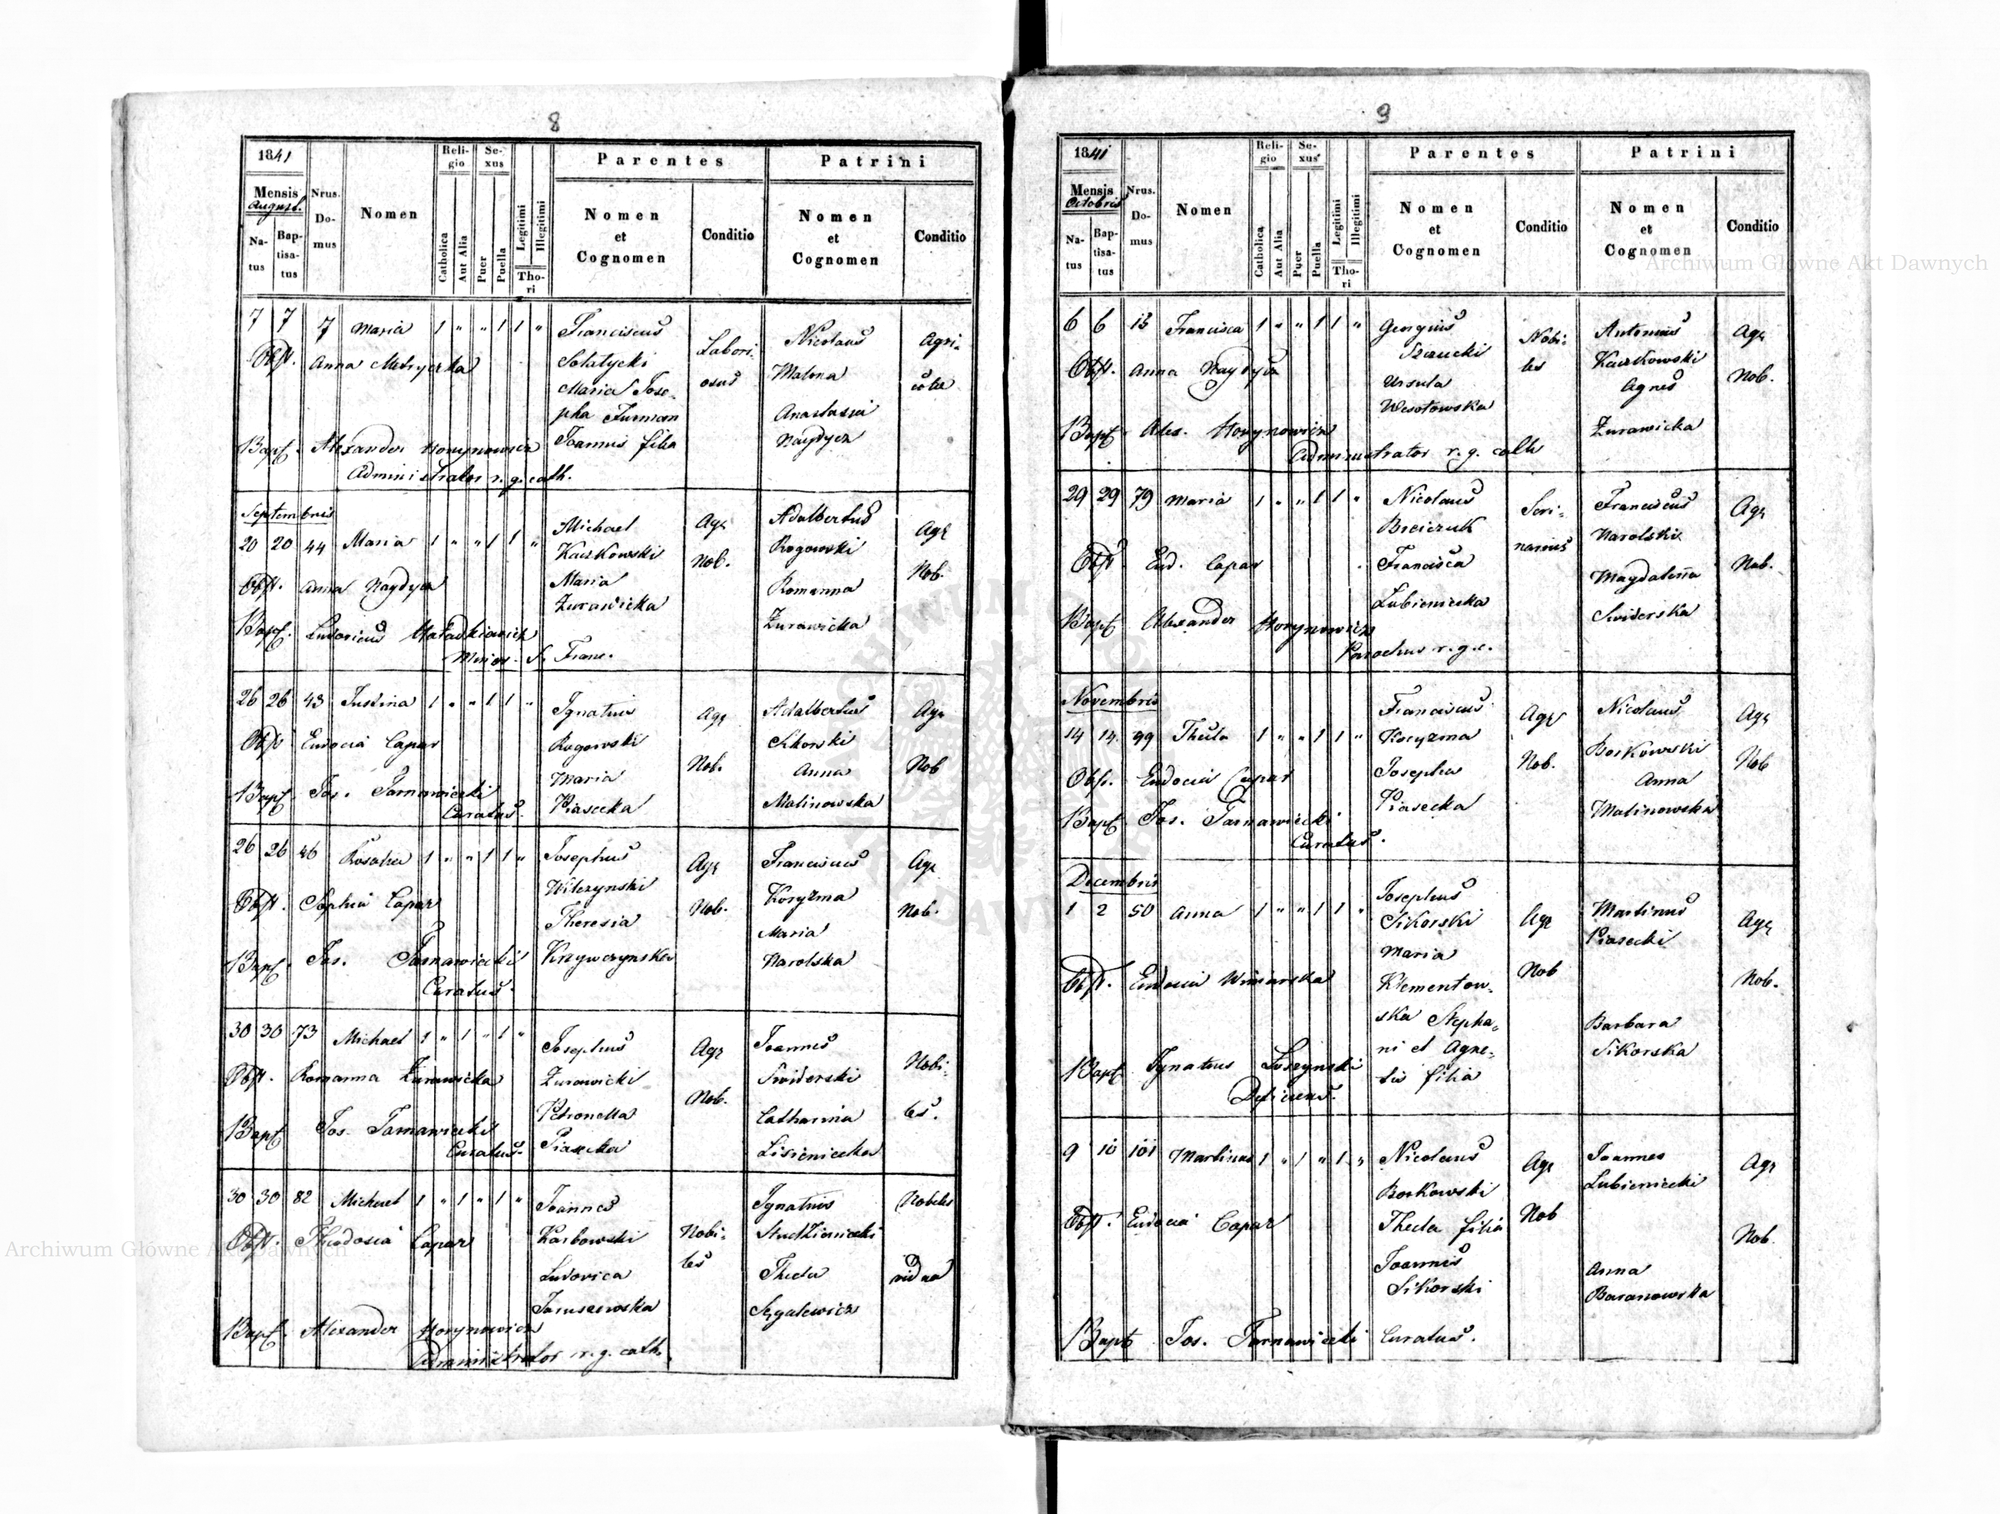 8
1841
Mensis
August.
Natus
Baptisatus
Nrus. Domus
Nomen
Religio
Catholica
Aut Alia
Sexus
Puer
Puella
Legitimi
Illegitimi
Thori
Parentes
Nomen et Cognomen
Conditio
Patrini
Nomen et Cognomen
Conditio
7 7 7 Maria 1 " " 1 1 " Franciscus Nicolaus Agri-
Obst. Anna Solatycki Labori- Malina colae
Maria Jose- osus Anastasia
pha Furman Naydycz
Bapt. Alexander Horynowicz Joannis filia
Administrator r. g. cath.
Septembris
20 20 44 Maria 1 " " 1 1 " Michael Agr Adalbertus Agr
Kaczkowski Nob. Rogowski Nob.
Obst. Anna Naydycz Maria Romanna
Żurawicka Żurawicka
Bapt. Ludovicus
Minor. S. Franc.
26 26 43 Justina 1 " " 1 1 " Ignatius Agr Adalbertus Agr
Obst Eudocia Capar Rogowski Nob. Anna Nob
Maria Malinowska
Bapt. Jos. Tarnawiecki Piasecka
Curatus.
26 26 46 Rosalia 1 " " 1 1 " Josephus Agr Franciscus Agr
Wilczynski Koryzma
Obst. Sophia Capar Theresia Nob. Maria Nob.
Bapt. Jos. Tarnawiecki Krzywczynska Narolska
Curatus.
30 30 73 Michael 1 " 1 " 1 " Josephus Agr Joannes Nobi-
Obst. Romanna Żurawicka Żurawicki Nob. Swiderski les.
Petronella Catharina
Bapt Jos. Tarnawiecki Piasecka Lisieniecka
Curatus.
30 30 82 Michael 1 " 1 " 1 " Joannes Ignatius Nobiles
Obst. Theodosia Capar Karbowski Nobi- Studzieniecki
Ludovica les Thecla vidua
Januszewska Sęgalewicz
Bapt. Alexander Horynowicz
Administrator r. g. cath.
9
1841
Mensis
Octobris
Natus
Baptisatus
Nrus. Domus
Nomen
Religio
Catholica
Aut Alia
Sexus
Puer
Puella
Legitimi
Illegitimi
Thori
Parentes
Nomen et Cognomen
Conditio
Patrini
Nomen et Cognomen
Conditio
6 6 13 Francisca 1 " " 1 1 " Georgius Nobi- Antonius Agr
Szrucki les Kaczkowski
Obst. Anna Naydycz Ursula Agnes Nob.
Wesołowska Żurawicka
Bapt. Alex. Horynowicz
Administrator r. g. cath
29 29 79 Maria 1 " " 1 1 " Nicolaus Scri- Franciscus Agr
Narolski
Obst Eud. Capar Francisca Magdalena Nob.
Lubieniecka Swiderska
Bapt Alexander Horynowicz
Parochus r. g. c.
Novembris
14 14. 99 Thecla 1 " " 1 1 " Franciscus Agr Nicolaus Agr
Koryzma Borkowski
Obst. Eudocia Capar Josepha Nob. Anna Nob
Bapt Jos. Tarnawiecki Piasecka Malinowska
Curatus.
Decembris
1 2 50 Anna 1 " " 1 1 " Josephus Agr Martinus Agr
Sikorski Piasecki
Maria
Obst. Eudocia Winiarska Klementow- Nob Nob.
ska Stepha- Barbara
ni et Agne- Sikorska
Bapt Ignatius tis filia
9 10 101 Martinus 1 " 1 " 1 " Nicolaus Agr Joannes Agr
Borkowski Lubieniecki
Obst. Eudocia Capar Thecla filia Nob Nob.
Joannis Anna
Sikorski Baranowska
Bapt Jos. Tarnawiecki Curatus.
Archiwum Główne Akt Dawnych
Archiwum Główne Akt Dawnych